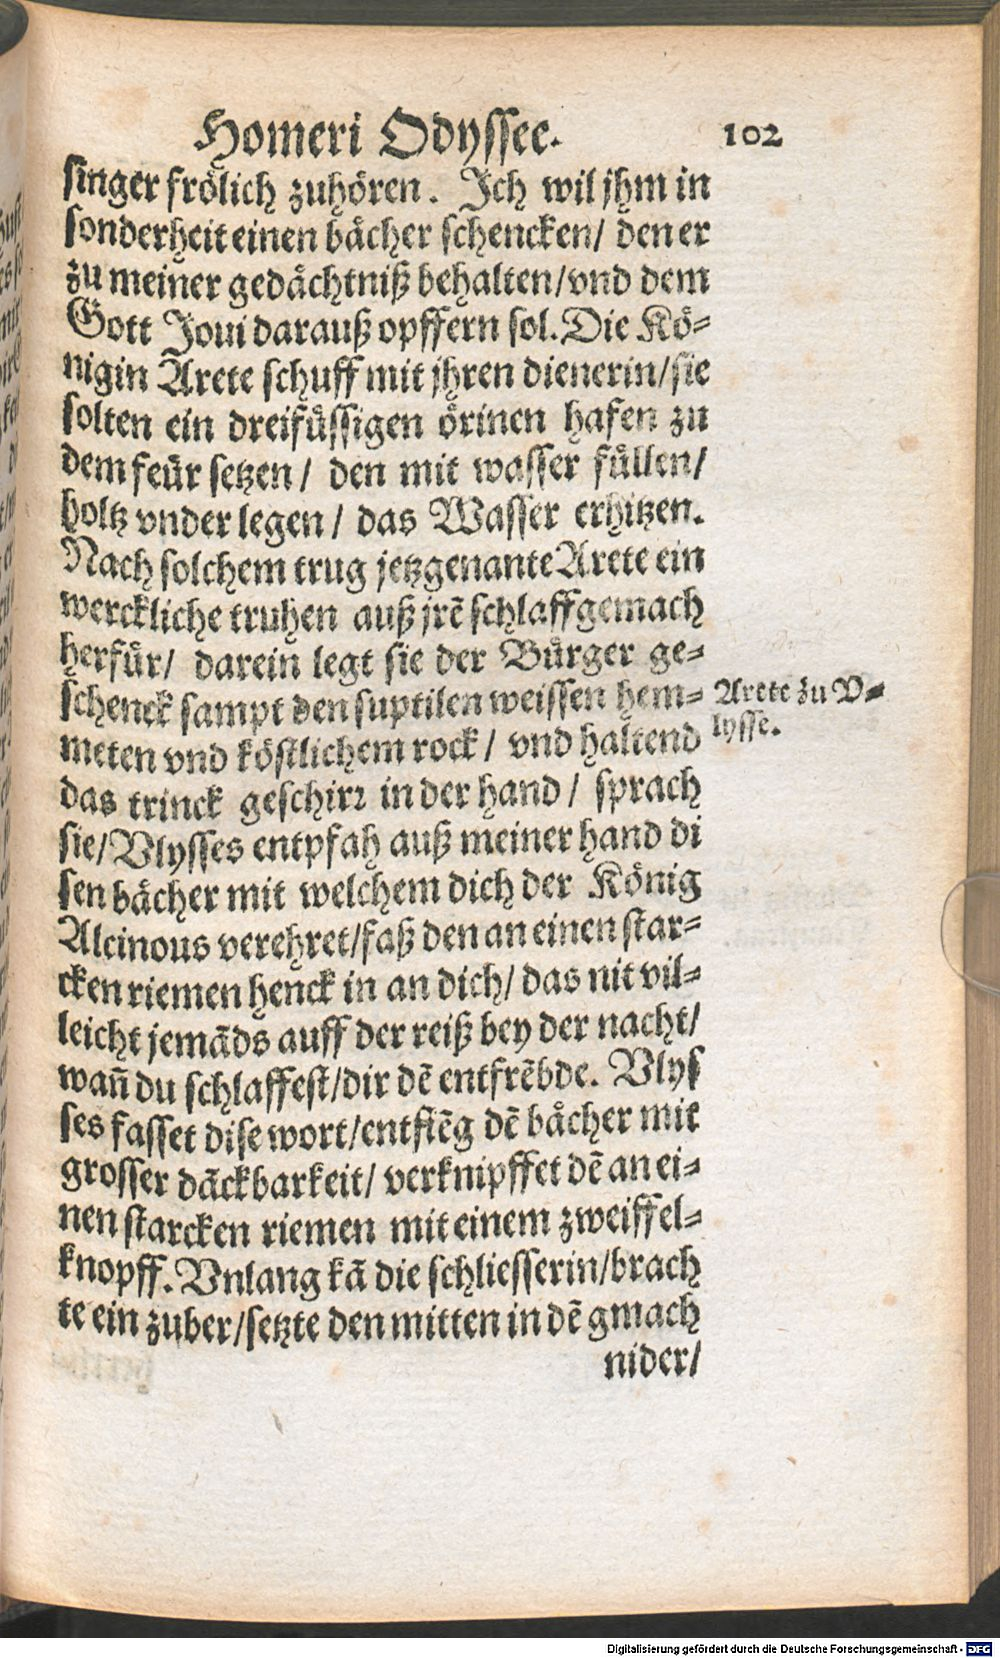 Homeri Odyssee. 102
singer frölich zuhören. Ich wil jhm in
sonderheit einen bächer schencken/ den er
zu meiner gedächtniß behalten/vnd dem
Gott Joui darauß opffern sol. Die Kö-
nigin Arete schuff mit jhren dienerin/sie
solten ein dreifüssigen örinen hafen zu
dem feür setzen/ den mit wasser füllen/
holtz vnder legen/ das Wasser erhitzen.
Nach solchem trug jetzgenante Arete ein
werckliche truhen auß jrē schlaffgemach
herfür/ darein legt sie der Bürger ge-
schenck sampt den suptilen weissen hem-
Arete zu V-
lysse.
meten vnd köstlichem rock/ vnd haltend
das trinck geschirr in der hand/ sprach
sie/Vlysses entpfah auß meiner hand di
sen bächer mit welchem dich der König
Alcinous verehret/faß den an einen star-
cken riemen henck in an dich/ das nit vil-
leicht jemāds auff der reiß bey der nacht/
wañ du schlaffest/dir dē entfrēbde. Vlys
ses fasset dise wort/entfiēg dē bächer mit
grosser dāckbarkeit/ verknipffet dē an ei-
nen starcken riemen mit einem zweiffel-
knopff. Vnlang kā die schliesserin/brach
te ein zuber/setzte den mitten in dē gmach
nider/
Digitalisierung gefördert durch die Deutsche Forschungsgemeinschaft - DFG